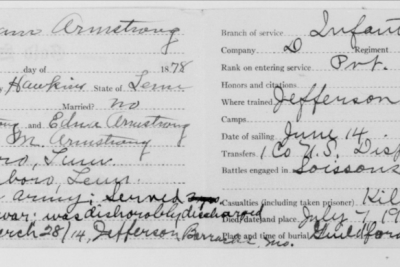 Armstrong
day of 1878
Hawkins State of Tenn
Married? no
and Edna Armstrong
M. Armstrong
Tenn.
boro, Tenn.
army: served
war: was dishonorably discharged
March 28/14, Jefferson Barracks, Mo.
Branch of service Infant
Company D Regiment
Rank on entering service Pvt.
Honors and citations
Where trained Jefferson
Camps
Date of sailing June 14
Transfers 1 Co U.S. Disp
Battles engaged in Soissons
Casualties (including taken prisoner) Kil
Died, date and place. July 7, 19
Place and time of burial Guildford